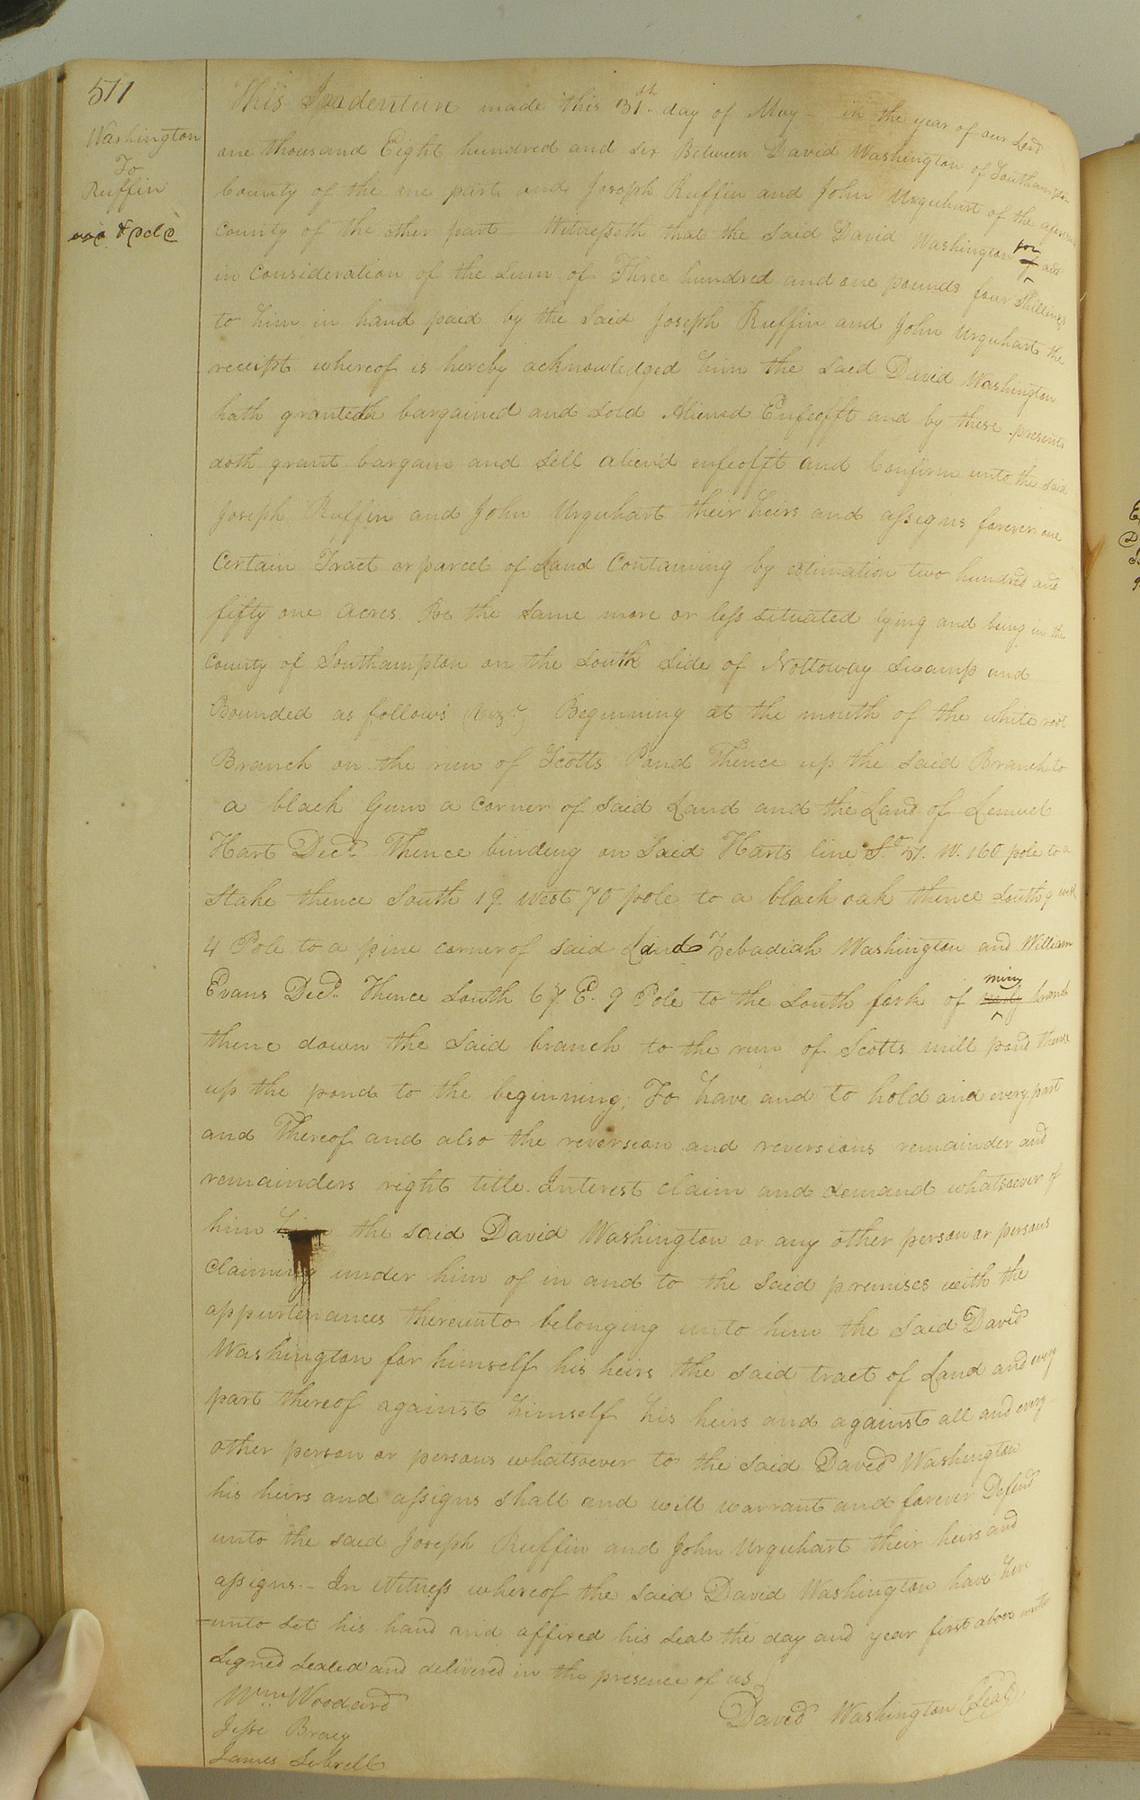 511
Washington
To
Ruffin
This Indenture made this 31th day of May in the year of our Lord
one thousand Eight hundred and six Between David Washington of Southampton
County of the one part and Joseph Ruffin and John Urquhart of the
County of the other part Witnesseth that the said David Washington for and
in Consideration of the sum of Three hundred and one pounds four shillings
to him in hand paid by the said Joseph Ruffin and John Urquhart the
receipt whereof is hereby acknowledged him the said David Washington
hath granteth bargained and sold Aliened Enfeofft and by these presents
doth grant bargain and sell alien'd enfeofft and Confirm unto the said
Joseph Ruffin and John Urquhart their heirs and assigns forever one
Certain Tract or parcel of Land Containing by estimation two hundred and
fifty one acres Be the same more or less situated lying and being in the
County of Southampton on the South side of Nottoway Swamp and
Bounded as follows Beginning at the mouth of the white root
Branch on the run of Scotts Pond Thence up the said Branch to
a black Gum a Corner of said Land and the Land of Lemuel
Hart Decd. Thence binding on said Harts line W. 160 pole to a
Stake thence South 19 west 70 pole to a black oak thence South
4 Pole to a pine corner of said Land Zebadiah Washington and William
Evans Decd. Thence South 67 E. 9 Pole to the South fork of miry branch
thence down the said branch to the run of Scotts mill pond thence
up the pond to the beginning; To have and to hold and every part
and Thereof and also the reversion and reversions remainder and
remainders right title Interest claim and demand whatsoever of
him the said David Washington or any other person or persons
Claiming under him of in and to the said premises with the
appurtenances thereunto belonging unto him the said David
Washington for himself his heirs the said tract of Land and every
part thereof against himself his heirs and against all and every
other person or persons whatsoever to the said David Washington
his heirs and assigns shall and will warrant and forever Defend
unto the said Joseph Ruffin and John Urquhart their heirs and
assigns.- In Witness whereof the said David Washington have here
unto set his hand and affixed his seal the day and year first above
Signed Sealed and delivered in the presence of us
David Washington (Seal)
Wm. Woodard
Jesse Bracy
James Sebrell